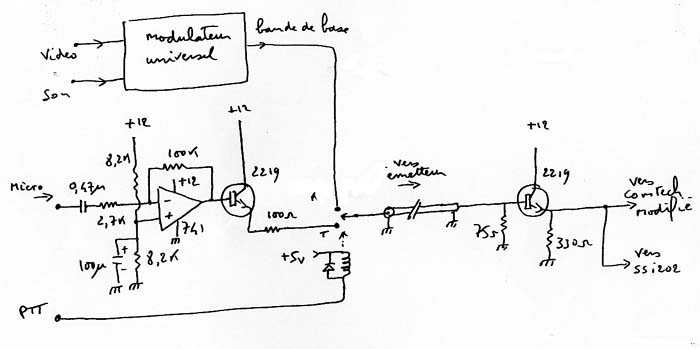 modulateur
universel
bande de base
Video
Son
+12
+12
+12
8,2K
100K
2219
2219
vers
émetteur
vers
comtech
modifié
Micro
0,47µ
+12
2,7K
-
+
741
100Ω
T
75Ω
330Ω
+5v
100µ
+
-
8,2K
vers
SSi202
PTT